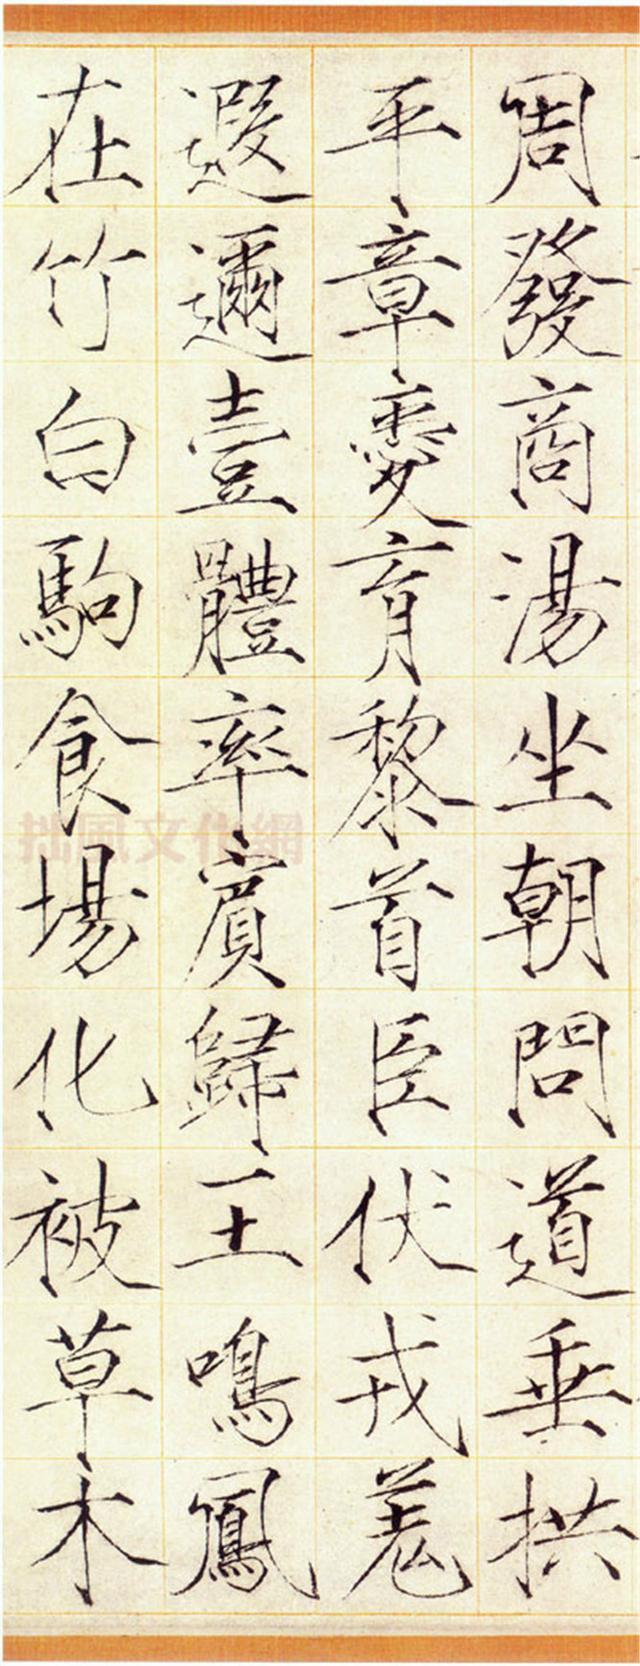 周發商湯坐朝問道垂拱
平章愛育黎首臣伏戎羌
遐邇壹體率賓歸王鳴鳳
在竹白駒食場化被草木
拙風文化網